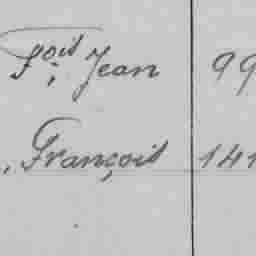 Fçois Jean 99
, François 141